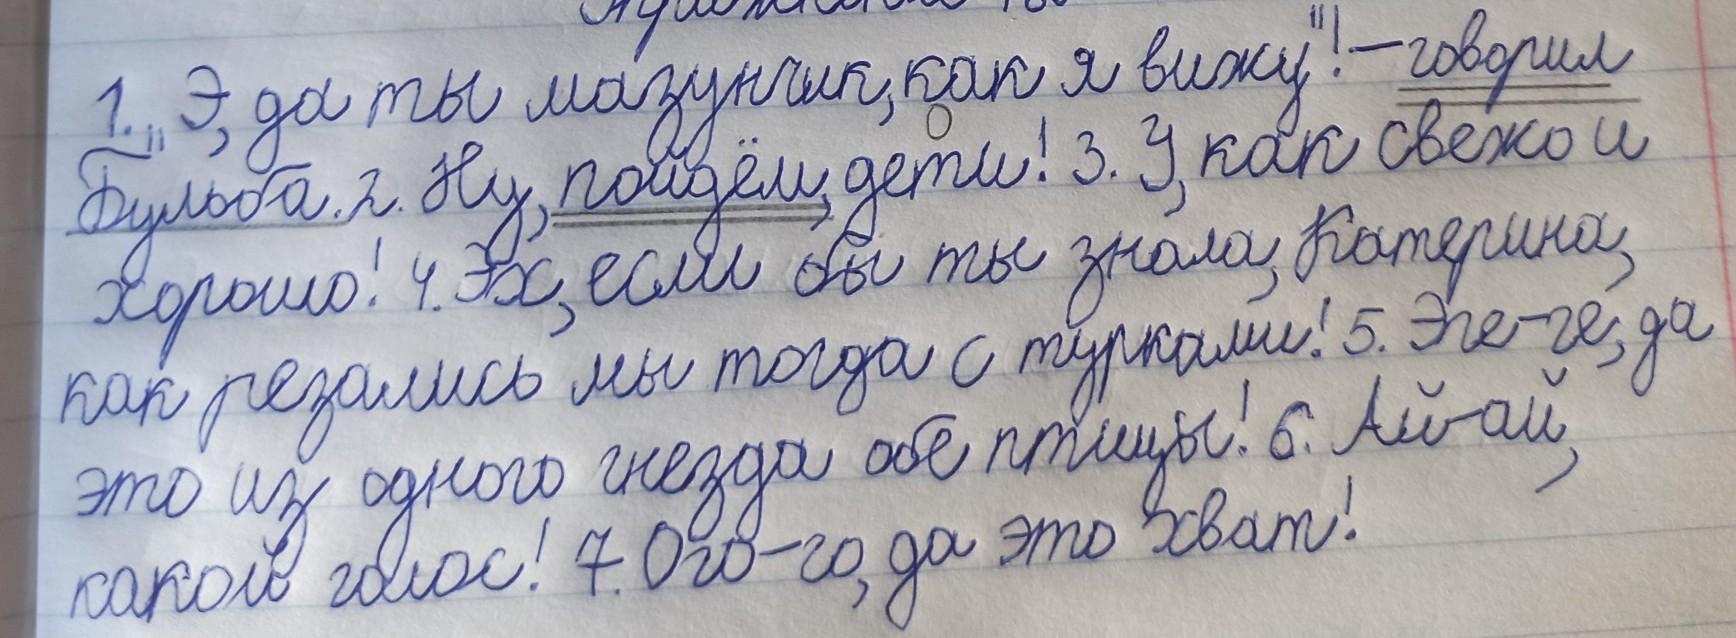 1. „Э, да ты мазунчик, как я вижу"! – говорил
Бульба. 2. Ну, пойдём, дети! 3. У, как свежо и
хорошо! 4. Эх, если бы ты знала, Катерина,
как резались мы тогда с турками! 5. Эге-ге, да
это из одного гнезда обе птицы! 6. Ай-ай,
какой голос! 7. Ого-го, да это хват!